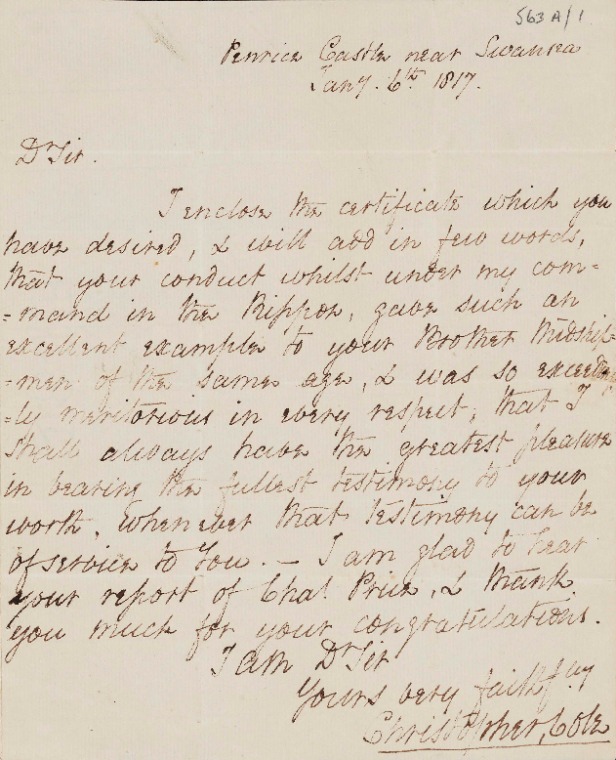 563 A/1
Penrice Castle near Swansea
Jany. 6th. 1817.
Dr Sir.
I enclose the certificate which you
have desired, & will add in few words,
that your conduct whilst under my com-
=mand in the Rippon, gave such an
excellent example to your Brother Midship-
=men of the same age, & was so exceeding
=ly meritorious in every respect, that I
shall always have the greatest pleasure
in bearing the fullest testimony to your
worth, whenever that testimony can be
of service to You. — I am glad to hear
your report of Chas Price, & thank
you much for your congratulations.
I am Dr Sir
Yours very faithfully
Christopher Cole